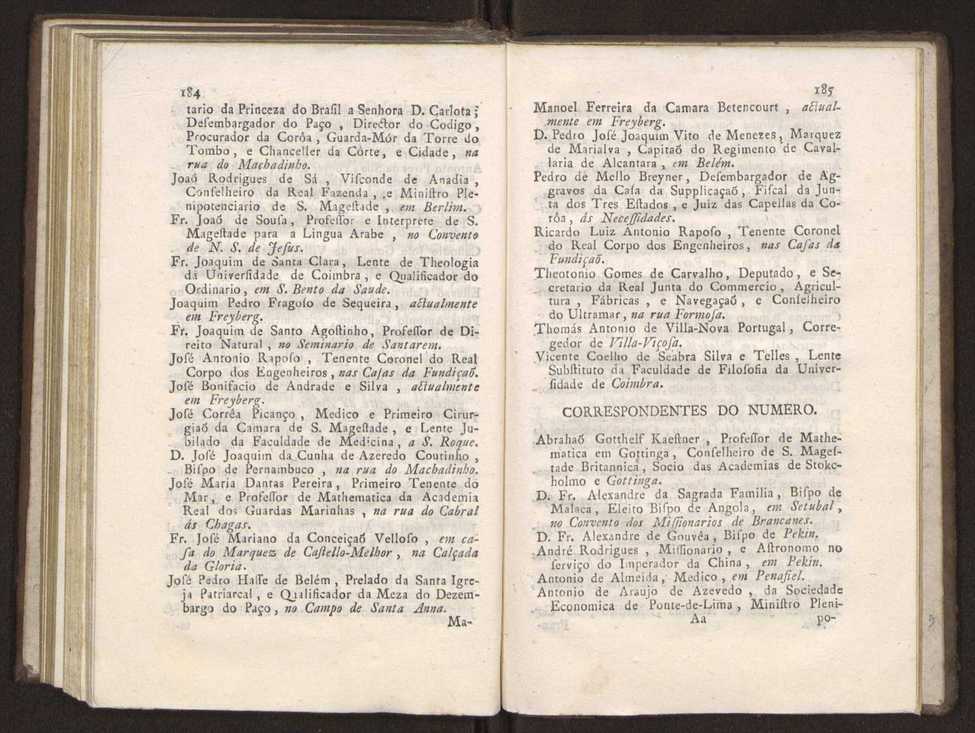 184
tario da Princeza do Braſil a Senhora D. Carlota;
Deſembargador do Paço , Director do Codigo,
Procurador da Corôa , Guarda-Mór da Torre do
Tombo , e Chanceller da Côrte, e Cidade , na
rua do Machadinho.
Joaõ Rodrigues de Sá , Viſconde de Anadia ,
Conſelheiro da Real Fazenda , e Miniſtro Ple-
nipotenciario de S. Mageſtade , em Berlim.
Fr. Joaõ de Souſa , Profeſſor e Interprete de S.
Mageſtade para a Lingua Arabe , no Convento
de N. S. de Jeſus.
Fr. Joaquim de Santa Clara, Lente de Theologia
dá Univerſidade de Coimbra, e Qualificador do
Ordinario, em S. Bento da Saude.
Joaquim Pedro Fragoſo de Sequeira , actualmente
em Freyberg.
Fr. Joaquim de Santo Agoſtinho, Profeſſor de Di-
reito Natural , no Seminario de Santarem.
Joſé Antonio Rapoſo , Tenente Coronel do Real
Corpo dos Engenheiros , nas Caſas da Fundiçaõ.
Joſé Bonifacio de Andrade e Silva , actualmente
em Freyberg.
Joſé Corrêa Picanço , Medico e Primeiro Cirur-
giaõ da Camara de S. Mageſtade , e Lente Ju-
bilado da Faculdade de Medicina, a S. Roque.
D. Joſé Joaquim da Cunha de Azeredo Coutinho ,
Biſpo de Pernambuco , na rua do Machadinho.
Joſé Maria Dantas Pereira , Primeiro Tenente do
Mar , e Profeſſor de Mathematica da Academia
Real dos Guardas Marinhas , na rua do Cabral
ás Chagas.
Fr. Joſé Mariano da Conceiçaõ Velloſo , em ca-
ſa do Marquez de Caſtello-Melhor , na Calçada
da Gloria.
Joſé Pedro Haſſe de Belém , Prelado da Santa Igre-
ja Patriarcal , e Qualificador da Meza do Dezem-
bargo do Paço , no Campo de Santa Anna.
Ma-
185
Manoel Ferreira da Camara Betencourt , actual-
mente em Freyberg.
D. Pedro Joſé Joaquim Vito de Menezes, Marquez
de Marialva , Capitaõ do Regimento de Caval-
laria de Alcantara , em Belém.
Pedro de Mello Breyner, Deſembargador de Ag-
gravos da Caſa da Supplicaçaõ, Fiſcal da Jun-
ta dos Tres Eſtados , e Juiz das Capellas da Co-
rôa , ás Neceſſidades.
Ricardo Luiz Antonio Rapoſo , Tenente Coronel
do Real Corpo dos Engenheiros, nas Caſas da
Fundiçaõ.
Theotonio Gomes de Carvalho, Deputado, e Se-
cretario da Real Junta do Commercio , Agricul-
tura , Fábricas , e Navegaçaõ , e Conſelheiro
do Ultramar, na rua Formoſa.
Thomás Antonio de Villa-Nova Portugal , Corre-
gedor de Villa-Viçoſa.
Vicente Coelho de Seabra Silva e Telles , Lente
Subſtituto da Faculdade de Filoſofia da Univer-
ſidade de Coimbra.
CORRESPONDENTES DO NUMERO.
Abrahaõ Gotthelf Kaeſtner , Profeſſor de Mathe-
matica em Gottinga , Conſelheiro de S. Mageſ-
tade Britannica , Socio das Academias de Stokc-
holmo e Gottinga.
D. Fr. Alexandre da Sagrada Familia , Biſpo de
Malaca, Eleito Biſpo de Angola, em Setubal ,
no Convento dos Miſſionarios de Brancanes.
D. Fr. Alexandre de Gouvêa , Biſpo de Pekin.
André Rodrigues , Miſſionario , e Aſtronomo no
ſerviço do Imperador da China , em Pekin.
Antonio de Almeida , Medico , em Penafiel.
Antonio de Araujo de Azevedo , da Sociedade
Economica de Ponte-de-Lima , Miniſtro Pleni-
Aa po-